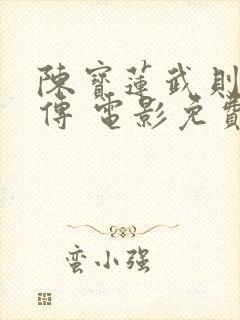 陳寶蓮武則
傳 電影免費
蛮小强